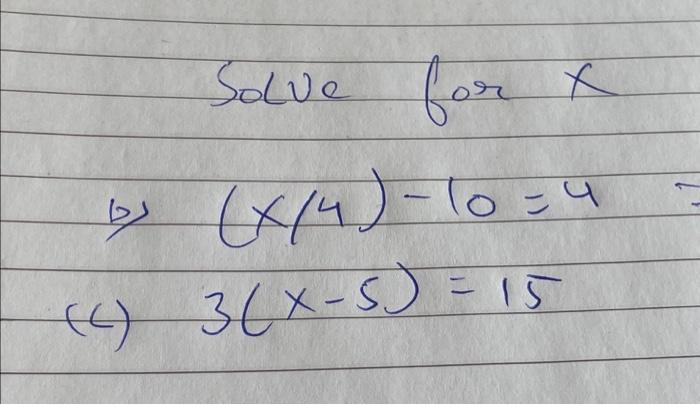 Solve for x
b) (x/4) - 10 = 4 =
(c) 3(x-5) = 15